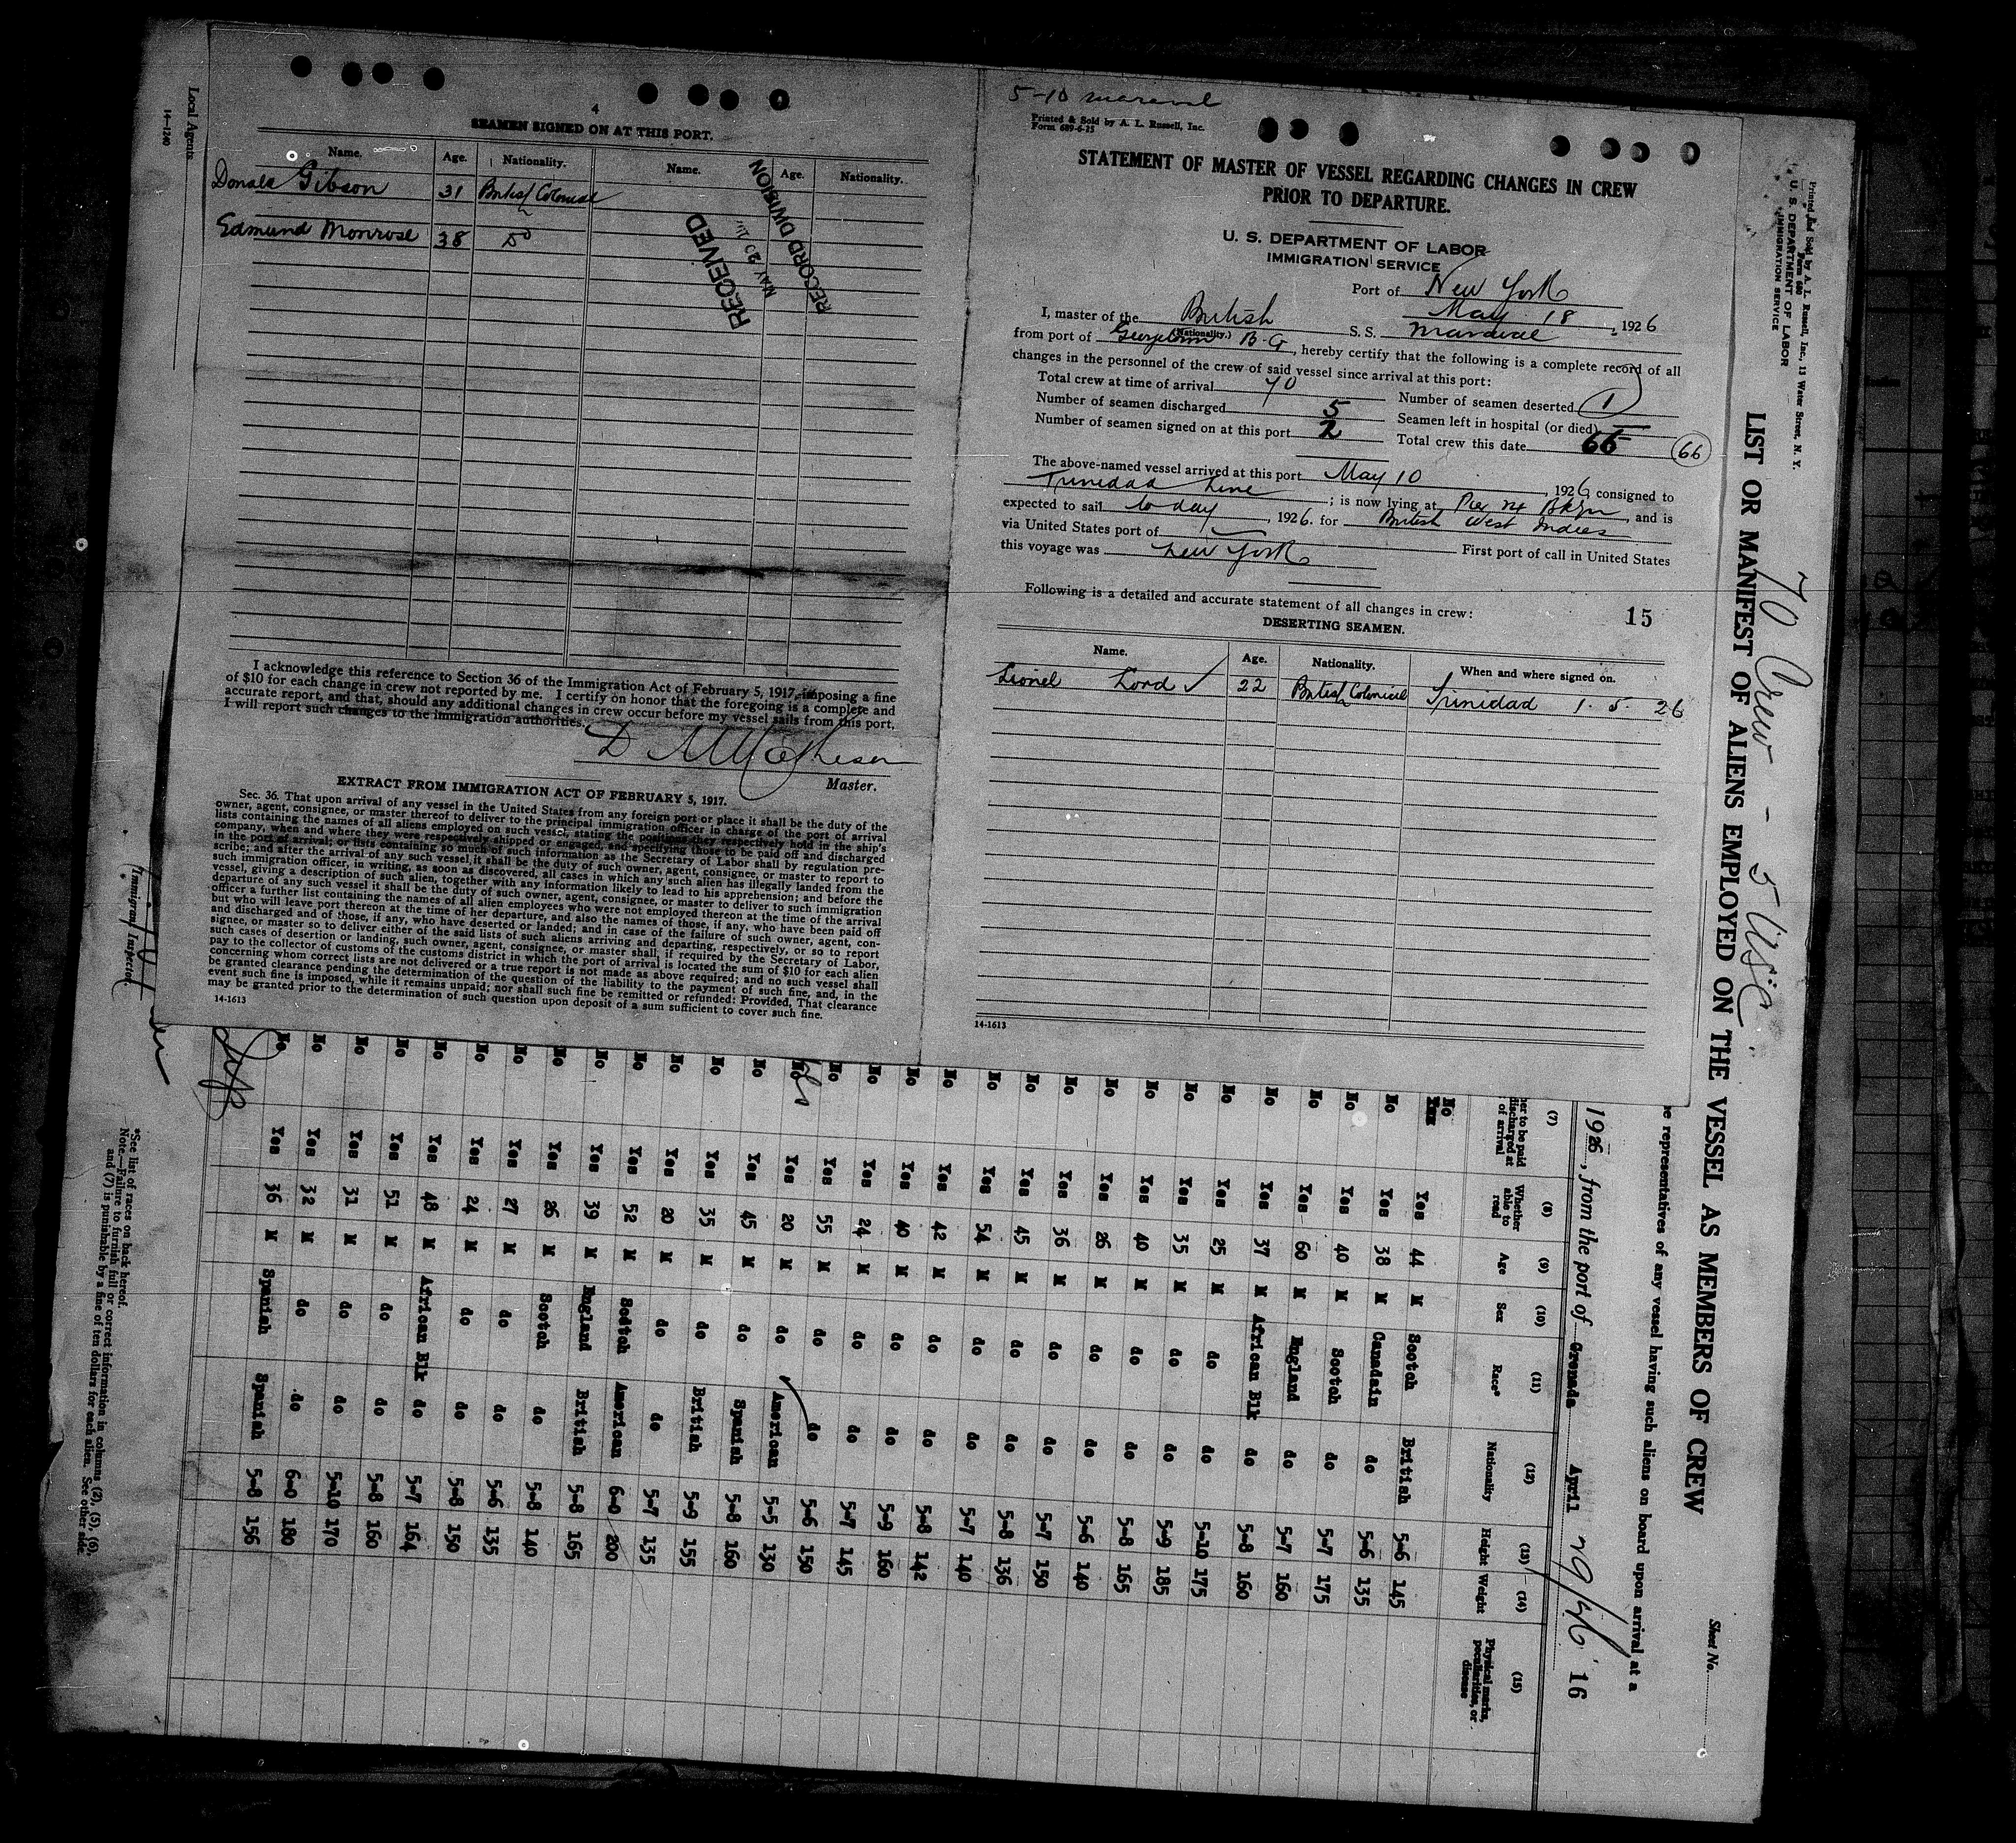 4
SEAMEN SIGNED ON AT THIS PORT.
Name. Age. Nationality. Name. Age. Nationality.
Donald Gibson 31 British Colonial
Edmund Monrose 38 do
RECEIVED
MAY 20
RECORD DIVISION
I acknowledge this reference to Section 36 of the Immigration Act of February 5, 1917, imposing a fine
of $10 for each change in crew not reported by me. I certify on honor that the foregoing is a complete and
accurate report, and that, should any additional changes in crew occur before my vessel sails from this port,
I will report such changes to the immigration authorities.
Master.
EXTRACT FROM IMMIGRATION ACT OF FEBRUARY 5, 1917.
Sec. 36. That upon arrival of any vessel in the United States from any foreign port or place it shall be the duty of the
owner, agent, consignee, or master thereof to deliver to the principal immigration officer in charge of the port of arrival
lists containing the names of all aliens employed on such vessel, stating the positions they respectively hold in the ship's
company, when and where they were respectively shipped or engaged, and specifying those to be paid off and discharged
in the port of arrival; or lists containing so much of such information as the Secretary of Labor shall by regulation pre-
scribe; and after the arrival of any such vessel it shall be the duty of such owner, agent, consignee, or master to report to
such immigration officer, in writing, as soon as discovered, all cases in which any such alien has illegally landed from the
vessel, giving a description of such alien, together with any information likely to lead to his apprehension; and before the
departure of any such vessel it shall be the duty of such owner, agent, consignee, or master to deliver to such immigration
officer a further list containing the names of all alien employees who were not employed thereon at the time of the arrival
but who will leave port thereon at the time of her departure, and also the names of those, if any, who have been paid off
and discharged and of those, if any, who have deserted or landed; and in case of the failure of such owner, agent, con-
signee, or master so to deliver either of the said lists of such aliens arriving and departing, respectively, or so to report
such cases of desertion or landing, such owner, agent, consignee, or master shall, if required by the Secretary of Labor,
pay to the collector of customs of the customs district in which the port of arrival is located the sum of $10 for each alien
concerning whom correct lists are not delivered or a true report is not made as above required; and no such vessel shall
be granted clearance pending the determination of the question of the liability to the payment of such fine, and, in the
event such fine is imposed, while it remains unpaid; nor shall such fine be remitted or refunded: Provided, That clearance
may be granted prior to the determination of such question upon deposit of a sum sufficient to cover such fine.
14-1613
5-10 Maraval
Printed & Sold by A. L. Russell, Inc.
Form 689-6-25
STATEMENT OF MASTER OF VESSEL REGARDING CHANGES IN CREW
PRIOR TO DEPARTURE.
U. S. DEPARTMENT OF LABOR
IMMIGRATION SERVICE
Port of New York
May 18, 1926
I, master of the British S. S. Maraval
(Nationality.)
from port of Georgetown B. G., hereby certify that the following is a complete record of all
changes in the personnel of the crew of said vessel since arrival at this port:
Total crew at time of arrival 70 Number of seamen deserted 1
Number of seamen discharged 5 Seamen left in hospital (or died)
Number of seamen signed on at this port 2 Total crew this date 66 66
The above-named vessel arrived at this port May 10, 1926, consigned to
Trinidad Line; is now lying at Pier 24 Bklyn, and is
expected to sail to day, 1926. for British West Indies
via United States port of
First port of call in United States
this voyage was New York
Following is a detailed and accurate statement of all changes in crew:
15
DESERTING SEAMEN.
Name. Age. Nationality. When and where signed on.
Lionel Lord ✓ 22 British Colonial Trinidad 1. 5. 26
14-1613
Local Agents
14-1240
Immigrant Inspector.
Printed and Sold by A. L. Russell, Inc., 13 Water Street, N. Y.
Form 680
U. S. DEPARTMENT OF LABOR
IMMIGRATION SERVICE
70 Crew - 5 USC
LIST OR MANIFEST OF ALIENS EMPLOYED ON THE VESSEL AS MEMBERS OF CREW
Sheet No.
representatives of any vessel having such aliens on board upon arrival at a
1926, from the port of Grenada April 29/26 16
(7) (8) (9) (10) (11) (12) (13) (14) (15)
her to be paid discharged at of arrival
Whether able to read
Age
Sex
Race*
Nationality
Height
Weight
Physical marks, peculiarities, or disease
No
No Yes 44 M Scotch British 5-6 145
No Yes 38 M Canadain do 5-6 135
No Yes 40 M Scotch do 5-7 175
No Yes 60 M England do 5-7 160
No Yes 37 M African Blk do 5-8 160
No Yes 25 M do do 5-10 175
No Yes 35 M do do 5-9 185
No Yes 40 M do do 5-8 165
No Yes 26 M do do 5-6 140
No Yes 36 M do do 5-7 150
No Yes 45 M do do 5-8 136
No Yes 54 M do do 5-7 140
No Yes 42 M do do 5-8 142
No Yes 40 M do do 5-9 160
No Yes 24 M do do 5-7 145
No Yes 55 M do do 5-6 150
No Yes 20 M do American 5-5 130
No Yes 45 M do Spanish 5-8 160
No Yes 35 M do British 5-9 155
No Yes 20 M do do 5-7 135
No Yes 52 M Scotch American 6-0 200
No Yes 39 M England British 5-8 165
No Yes 26 M Scotch do 5-8 140
No Yes 27 M do do 5-6 135
No Yes 24 M do do 5-8 150
No Yes 48 M African Blk do 5-7 164
No Yes 51 M do do 5-8 160
No Yes 31 M do do 5-10 170
No Yes 32 M do do 6-0 180
No Yes 36 M Spanish Spanish 5-8 156
*See list of races on back hereof.
Note.—Failure to furnish full or correct information in columns (2), (5), (6),
and (7) is punishable by a fine of ten dollars for each alien. See other side.